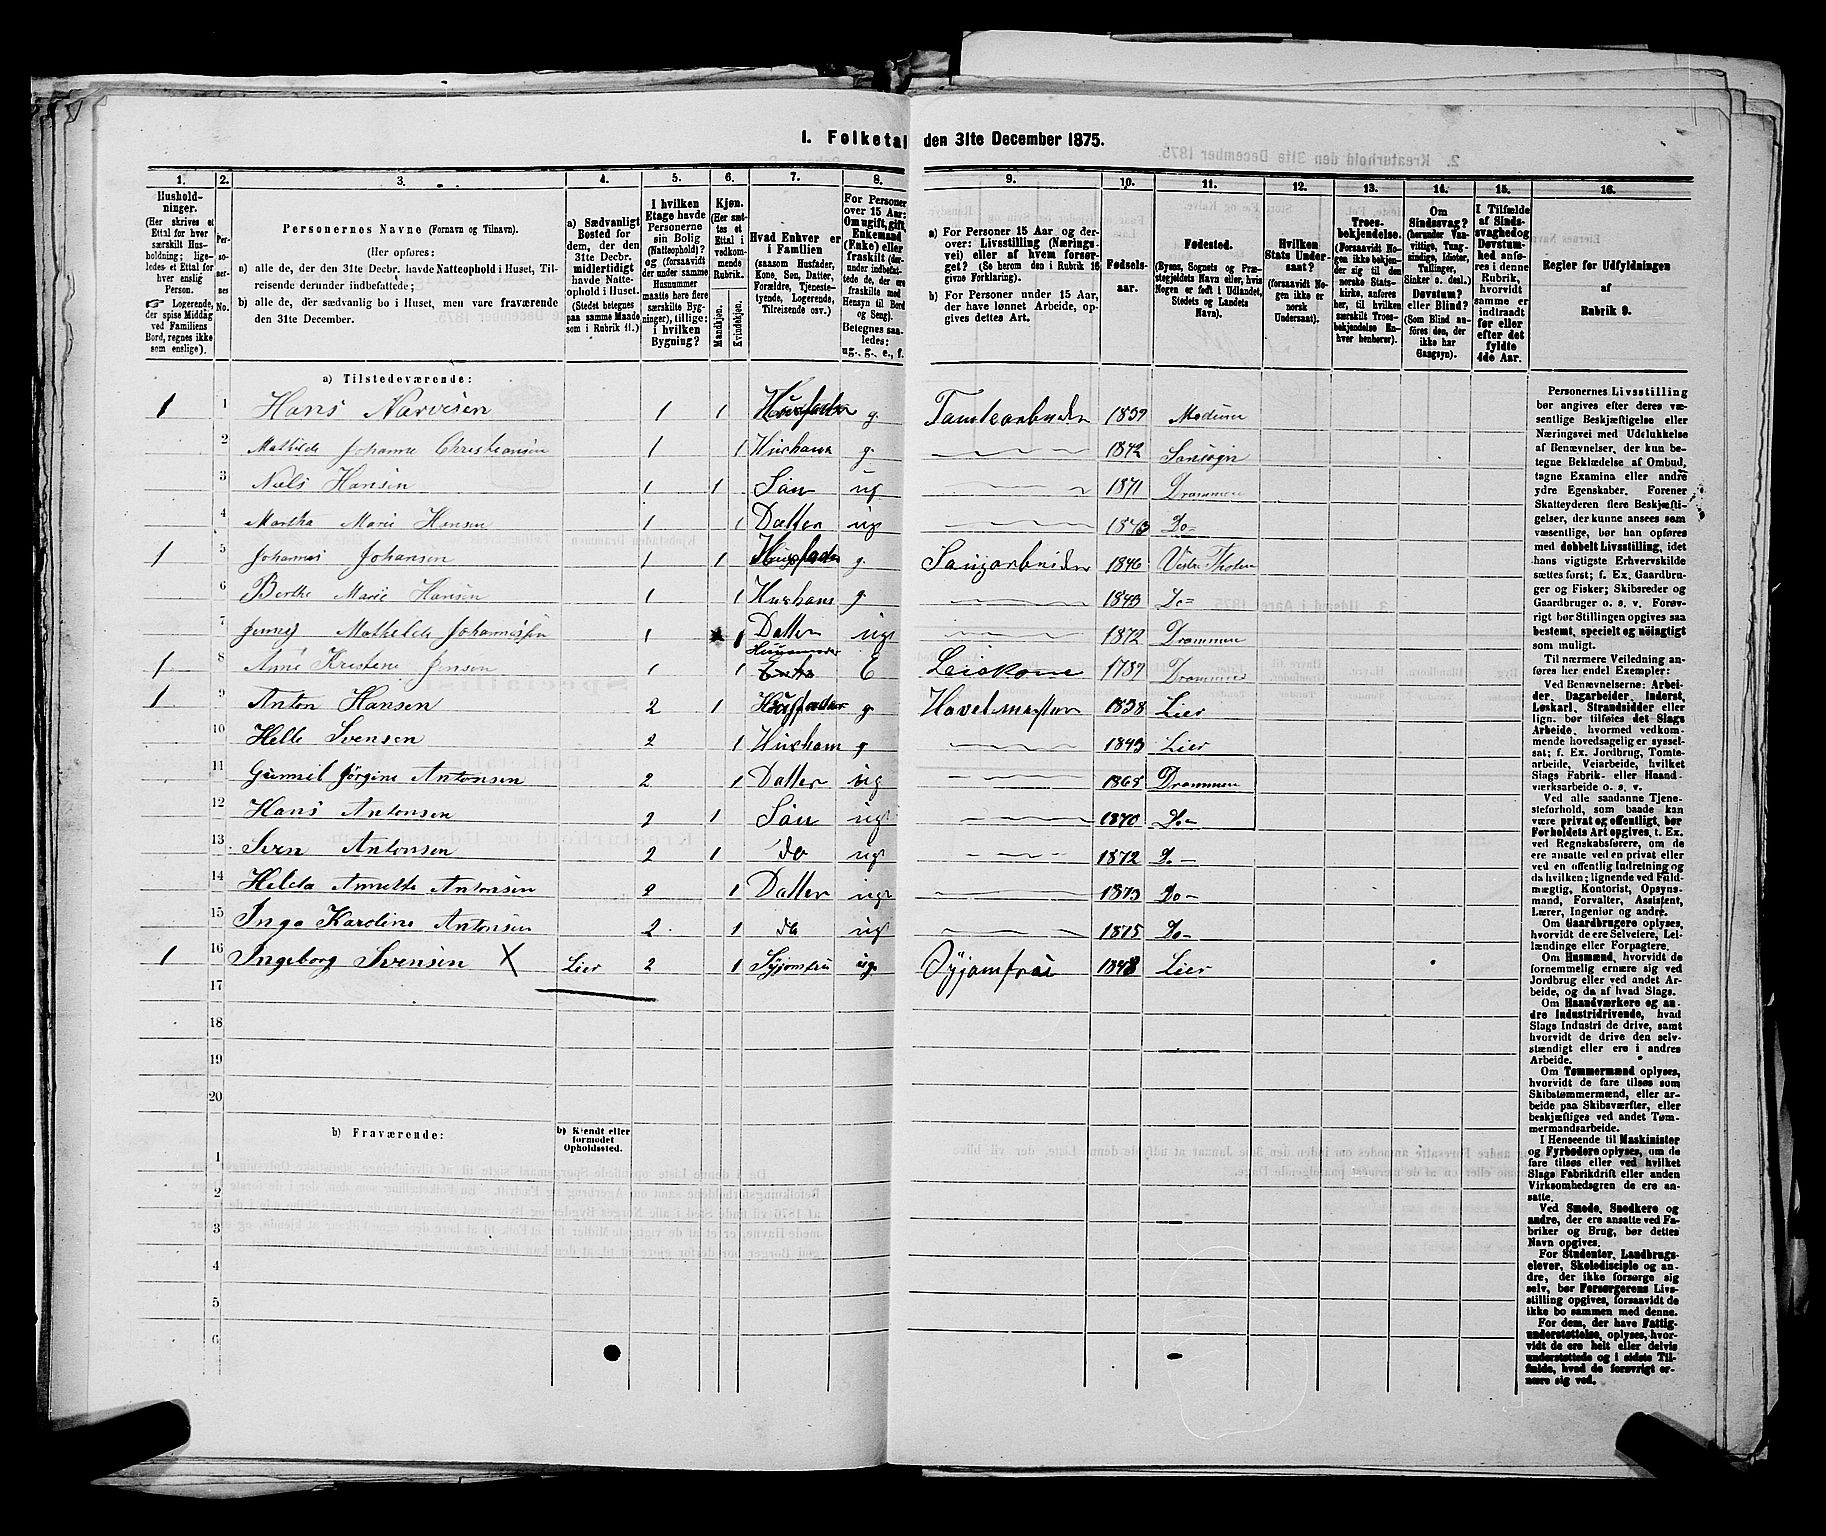 1. Folketal den 31te December 1875.
1. 2. 3. 4. 5. 6. 7. 8. 9. 10. 11. 12. 13. 14. 15. 16.
Hushold-
ninger.
(Her skrives et
Ettal for hver
særskilt Hus-
holdning; lige-
ledes et Ettal for
hver enslig
Person.
Logerende,
der spise Middag
ved Familiens
Bord, regnes ikke
som enslige).
Per-
so-
ner-
nes
No.
Personernes Navne (Fornavn og Tilnavn).
(Her opføres:
a) alle de, der den 31te Decbr. havde Natteophold i Huset, Til-
reisende derunder indbefattede;
b) alle de, der sædvanlig bo i Huset, men vare fraværende
den 31te December.
a) Sædvanligt
Bosted for
dem, der den
31te Decbr.
midlertidigt
havde Natte-
ophold i Huset.
(Stedet betegnes
paa samme Maade
som i Rubrik 11.)
I hvilken
Etage havde
Personerne
sin Bolig
(Natteophold)?
og (forsaavidt
der under samme
Husnummer
maatte høre flere
særskilte Byg-
ninger), tillige:
i hvilken
Bygning?
Kjøn.
(Her sæt-
tes et
Ettal i
vedkom-
mende
Rubrik.
Mandkjøn.
Kvindekjøn.
Hvad Enhver er
i Familien
(saasom Husfader,
Kone, Søn, Datter,
Forældre, Tjeneste-
tyende, Logerende,
Tilreisende osv.)
For Personer
over 15 Aar:
Om ugift, gift,
Enkemand
(Enke) eller
fraskilt (der-
under indbefat-
tede de, der ere
fraskilte med
Hensyn til Bord
og Seng).
Betegnes saa-
ledes:
ug., g., e., f.
a) For Personer 15 Aar og der-
over: Livsstilling (Nærings-
vei) eller af hvem forsør-
get? (Se herom den i Rubrik 16
givne Forklaring).
b) For Personer under 15 Aar,
der have lønnet Arbeide, op-
gives dettes Art.
Fødsels-
aar.
Fødested.
(Byens, Sognets og Præ-
stegjeldets Navn eller, hvis
Nogen er født i Udlandet,
Stedets og Landets
Navn).
Hvilken
Stats Under-
saat?
(forsaavidt No-
gen ikke er
norsk
Undersaat).
Troes-
bekjendelse.
(Forsaavidt No-
gen ikke bekjen-
der sig til den
norske Stats-
kirke, anføres
her, til hvilken
særskilt Troes-
bekjendelse En-
hver henhører).
Om
Sindssvag?
(herunder Van-
vittige, Tung-
sindige, Idioter,
Tullinger,
Sinker o. desl.)
Døvstum?
eller Blind?
(Som Blind an-
føres den, der
ikke har
Gangsyn).
I Tilfælde
af Sinds-
svaghed og
Døvstum-
hed anfø-
res i denne
Rubrik,
hvorvidt
samme er
indtraadt
før eller
efter det
fyldte
4de Aar.
Regler for Udfyldningen
af
Rubrik 9.
a) Tilstedeværende:
1 1 Hans Narvesen 1 1 Husfader g. Tomtearbeider 1839 Modum
2 Mathilde Johanne Christiansen 1 1 Hushans g. 1842 Sansogn
3 Niels Hansen 1 1 Søn ug 1871 Drammen
4 Martha Marie Hansen 1 1 Datter ug Do-
1 5 Johannes Johansen 1 1 Husfader g. Saugarbeider 1846 Vestre Thoten
6 Berthe Marie Hansen 1 1 Hushans g. 1843 Do-
7 Jenny Mathilde Johannessen 1 1 Datter ug 1872 Drammen
1 8 Anne Kristene Jensen 1 1 Huusmoder E Drammen
1 9 Anton Hansen 2 1 Husfader g. Høvelmester 1838 Lier
10 Helle Svensen 2 1 Husham g 1843 Lier
11 Gunnil Jørgine Antonsen 2 1 Datter ug 1868 Drammen
12 Hans Antonsen 2 1 Søn ug 1870 Do-
13 Sven Antonsen 2 1 do ug 1872 Do-
14 Helda Annette Antonsen 2 1 Datter ug 1873 Do-
15 Inga Karoline Antonsen 2 1 do ug 1875 Do-
1 16 Ingeborg Svensen X Lier 2 1 Syjomfru ug. Syjomfru 1848 Lier
17
18
19
20
b) Fraværende:
b) Kjendt eller
formodet
Opholdssted.
1
2
3
4
5
6
Personernes Livsstilling
bør angives efter deres væ-
sentlige Beskjæftigelse eller
Næringsvei med Udelukkelse
af Benævnelser, der kun be-
tegne Beklædelse af Ombud,
tagne Examina eller andre
ydre Egenskaber. Forener
Skatteyderen flere Beskjæfti-
gelser, der kunne ansees som
væsentlige, bør han opføres
med dobbelt Livsstilling, idet
hans vigtigste Erhvervskilde
sættes først; f. Ex. Gaardbru-
ger og Fisker; Skibsreder og
Gaardbruger o. s. v. Forøv-
rigt bør Stillingen opgives saa
bestemt, specielt og nöiagtigt
som muligt.
Til nærmere Veiledning an-
føres her endel Exempler:
Ved Benævnelserne: Arbei-
der, Dagarbeider, Inderst,
Løskarl, Strandsidder eller
lign. bør tilføies det Slags
Arbeide, hvormed vedkom-
mende hovedsagelig er syssel-
sat; f. Ex. Jordbrug, Tomte-
arbeide, Veiarbeide, hvilket
Slags Fabrik- eller Haand-
værksarbeide o. s. v.
Ved alle saadanne Tjene-
steforhold, som baade kan
være privat og offentligt, bør
Forholdets Art opgives, t. Ex.
ved Regnskabsførere, om de
ere ansatte ved en privat eller
ved en offentlig Indretning og
da hvilken; lignende ved Fuld-
mægtig, Kontorist, Opsyns-
mand, Forvalter, Assistent,
Lærer, Ingeniør og andre.
Om Gaardbrugere oplyses,
hvorvidt de ere Selveiere, Lei-
lændinge eller Forpagtere.
Om Husmænd, hvorvidt de
fornemmelig ernære sig ved
Jordbrug eller ved andet Ar-
beide, og da af hvad Slags.
Om Haandværkere og an-
dre Industridrivende, hvad
Slags Industri de drive, samt
hvorvidt de drive den selv-
stændigt eller ere i andres
Arbeide.
Om Tømmermænd oplyses,
hvorvidt de fare tilsøs som
Skibstømmermænd, eller ar-
beide paa Skibsværfter, eller
beskjæftiges ved andet Tøm-
mermandsarbeide.
I Henseende til Maskinister
og Fyrbødere oplyses, om de
fare tilsøs eller ved hvilket
Slags Fabrikdrift eller anden
Virksomhedsgren de ere an-
satte.
Ved Smede, Snedkere og
andre, der ere ansatte ved Fa-
briker og Brug, bør dettes
Navn opgives.
For Studenter, Landbrugs-
elever, Skoledisciple og an-
dre, der ikke forsørge sig
selv, bør Forsørgerens Livs-
stilling opgives, forsaavidt de
ikke bo sammen med denne.
For dem, der have Fattig-
understøttelse, oplyses, hvor-
vidt de ere helt eller delvis
understøttede og i sidste Til-
fælde, hvad de forøvrigt er-
nære sig ved.